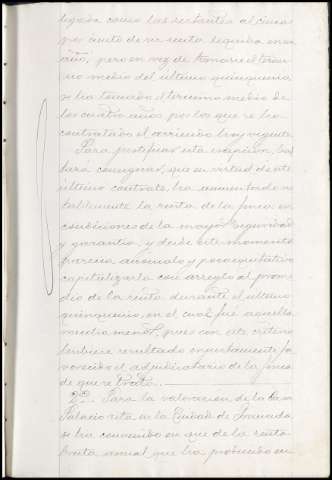 ligada como las restantes al cinco
por ciento de su renta líquida en un
año, pero en vez de tomarse el térmi
no medio del último quinquenio
se ha tomado el término medio de
los cuatro años por los que se ha
contratado el arriendo hoy vigente
Para justificar esta escepción, bas
tará consignar, que en virtud de este
último contrato, ha aumentado no
tablemente la renta de la finca en
condiciones de la mayor seguridad
y garantía, y desde este momento
parecía anómalo y poco equitativo
capitalizarla con arreglo al prome
dio de la renta durante el último
quinquenio, en el cual fué aquella
mucho menor, pues con este criterio
hubiera resultado injustamente fa
vorecido el adjudicatario de la finca
de que se trata.
22. Para la valoración de la Casa
Palacio sita en la Ciudad de Granada
se ha convenido en que de la renta
bruta anual que ha producido en